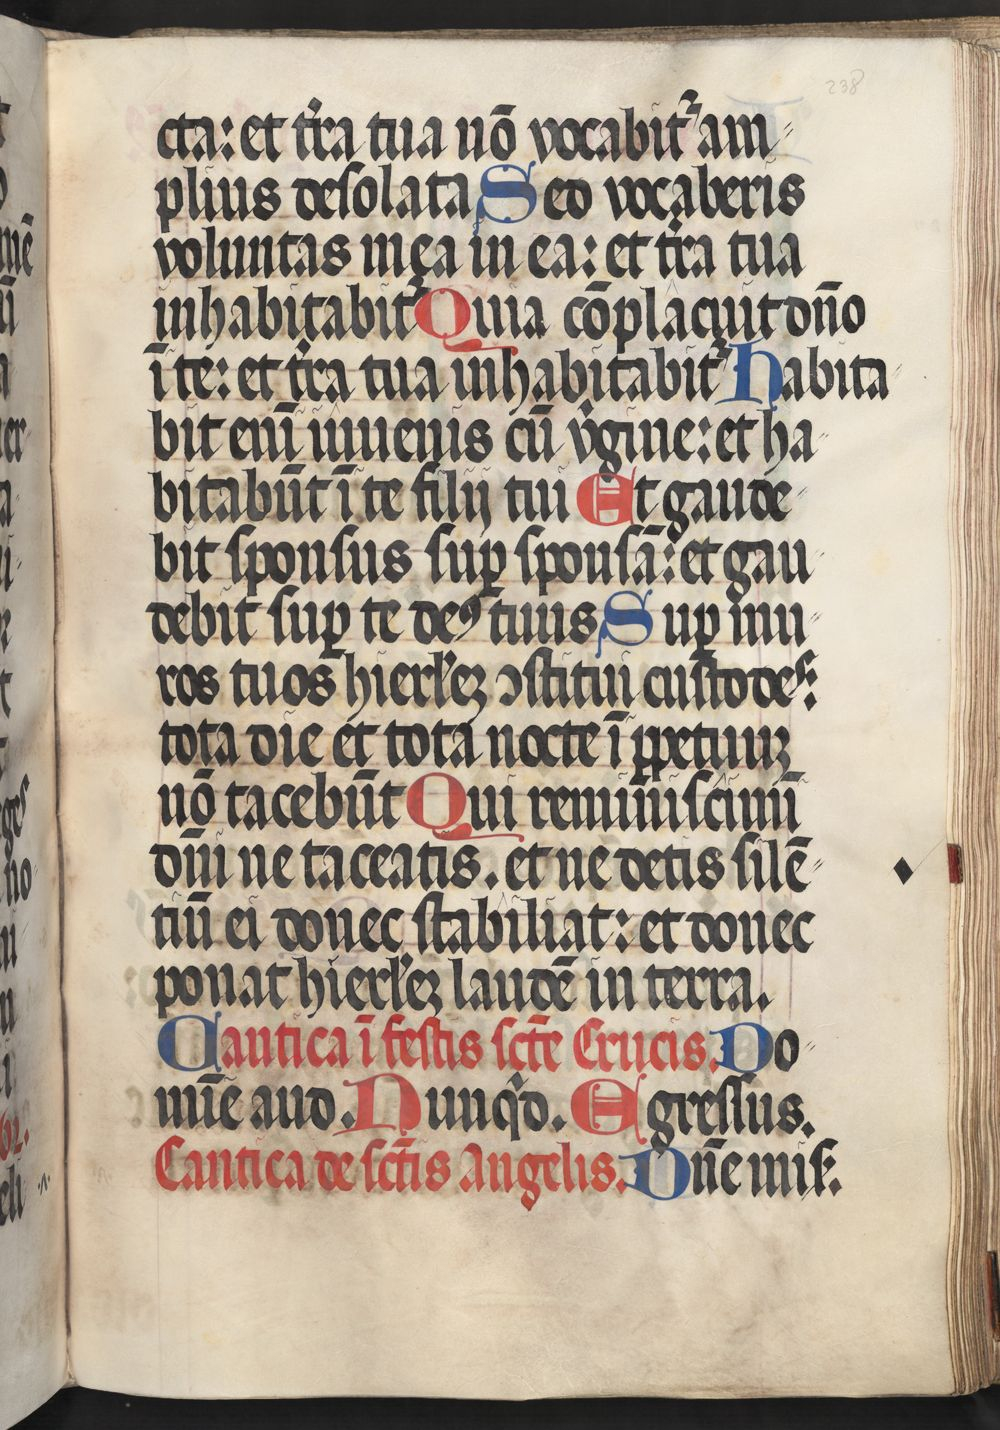 238
cta: et t̃ra tua nō vocabit᷑ am
plius desolata Sed vocaberis
voluntas mea in ea: et t̃ra tua
inhabitabit᷑ Quia cōplacuit dño
ī te: et t̃ra tua inhabitabit᷑ Habita
bit enī iuuenis cū v̾gine: et ha
bitabūt ī te filij tui Et gaude
bit sponsus suꝑ sponsā: et gau
debit suꝑ te deꝰ tuus Suꝑ mu
ros tuos hierl̃eꝫ ↄstitui custodes:
tota die et tota nocte ī ꝑpetuuꝫ
nō tacebūt Qui reminiscimī
dñi ne taceatis. et ne detis silē
tiū ei donec stabiliat: et donec
ponat hierl̃eꝫ laudē in terra.
Cantica ī festis sctẽ Crucis. Do
mīe aud. Nunqͥd. Egressus.
Cantica de sctĩs Angelis. Dñe mis̾.